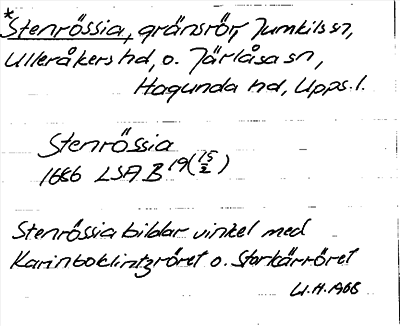 *Stenrössia, gränsrör, Jumkils sn,
Ulleråkers hd, o. Järlåsa sn,
Hagunda hd, Upps. l.
Stenrössia
1686 LSA B 19(15/2)
Stenrössia bildar vinkel med
Karinboklintzröret o. Storkärröret
U.H. ABB